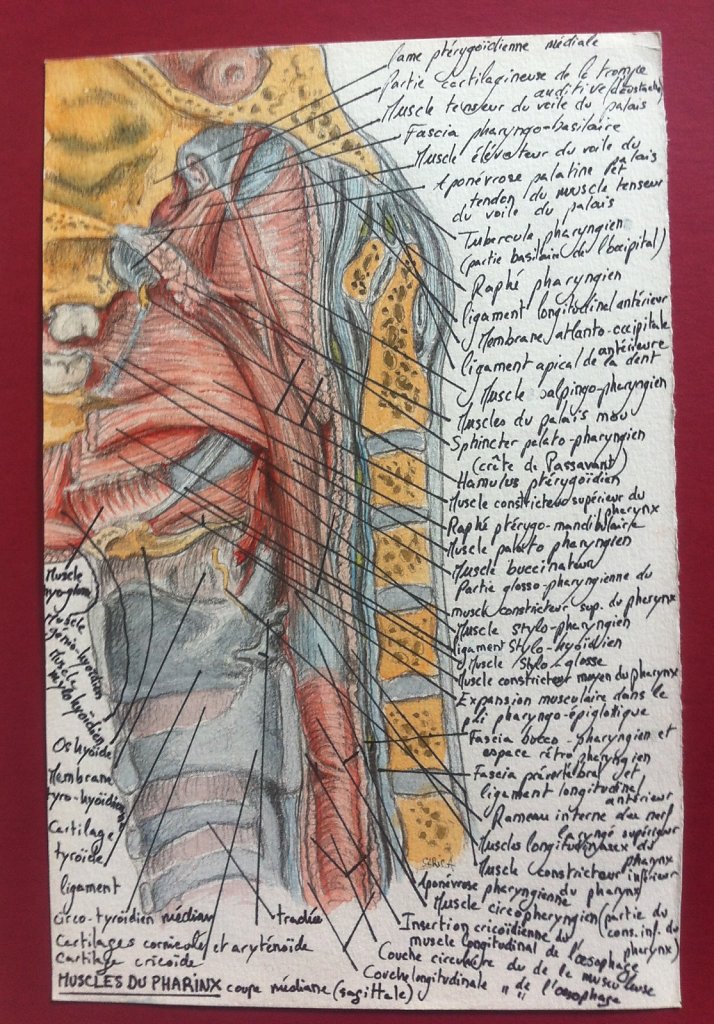 Lame ptérygoïdienne médiale
Partie cartilagineuse de la trompe
auditive (d'eustache)
Muscle tenseur du voile du palais
Fascia pharyngo-basilaire
Muscle élévateur du voile du
palais
Aponévrose palatine et
tendon du muscle tenseur
du voile du palais
Tubercule pharyngien
(partie basilaire de l'occipital)
Raphé pharyngien
ligament longitudinal antérieur
Membrane atlanto-occipitale
antérieure
ligament apical de la dent
Muscle salpingo-pharyngien
Muscles du palais mou
Sphincter palato-pharyngien
(crête de Passavant)
Hamulus ptérygoïdien
Muscle constricteur supérieur du
pharynx
Raphé ptérygo-mandibulaire
Muscle palato pharyngien
Muscle buccinateur
Partie glosso-pharyngienne du
muscle constricteur sup. du pharynx
Muscle stylo-pharyngien
ligament stylo-hyoïdien
Muscle stylo-glosse
Muscle constricteur moyen du pharynx
Expansion musculaire dans le
pli pharyngo-épiglotique
Fascia bucco-pharyngien et
espace rétro pharyngien
Fascia prévertebral et
ligament longitudinal
antérieur
Rameau interne du nerf
laryngé supérieur
Muscles longitudinaux du
pharynx
Muscle constricteur inférieur
du pharynx
Aponévrose pharyngienne
Muscle cricopharyngien (partie du
cons. inf. du
pharynx)
Insertion cricoïdienne du
muscle longitudinal de l'œsophage
Couche circulaire du de la musculeuse
Couche longitudinale " " de l'œsophage
Muscle
hyoglosse
Muscle
génio-hyoïdien
Muscle
mylo hyoïdien
Os hyoïde
Membrane
tyro-hyoïdienne
Cartilage
tyroïde
ligament
circo-tyroïdien médian
trachée
Cartilages cornicule et aryténoïde
Cartilage cricoïde
MUSCLES DU PHARINX coupe médiane (sagittale)